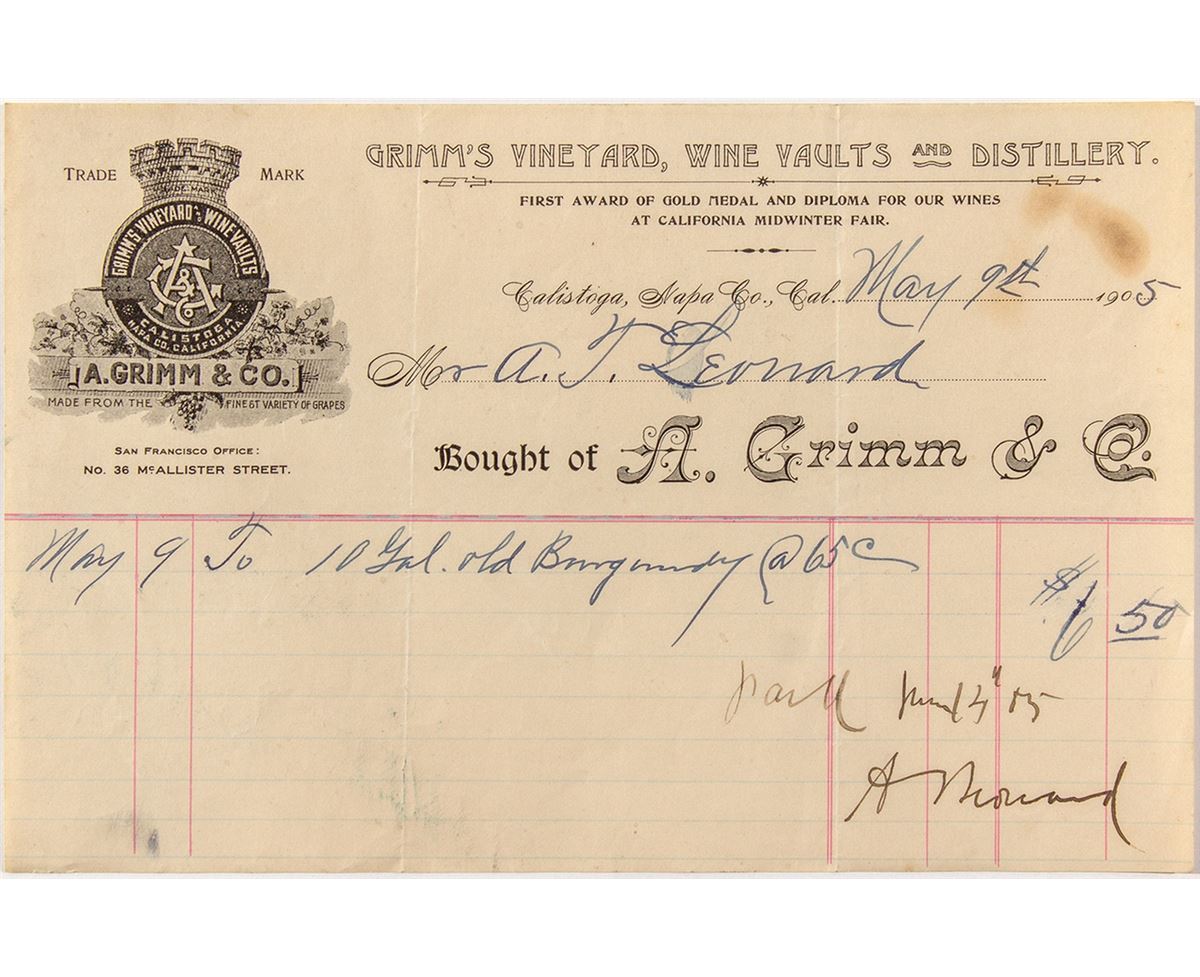 TRADE MARK
GRIMM'S VINEYARD AND WINE VAULTS
A & G Co
CALISTOGA
NAPA CO. CALIFORNIA.
A. GRIMM & CO.
MADE FROM THE FINEST VARIETY OF GRAPES
SAN FRANCISCO OFFICE:
No. 36 McALLISTER STREET.
GRIMM'S VINEYARD, WINE VAULTS AND DISTILLERY.
FIRST AWARD OF GOLD MEDAL AND DIPLOMA FOR OUR WINES
AT CALIFORNIA MIDWINTER FAIR.
Calistoga, Napa Co., Cal. May 9th 1905
Mr A. T. Leonard
Bought of A. Grimm & Co.
May 9 To 10 Gal. old Burgundy @ 65c
$6 50
05